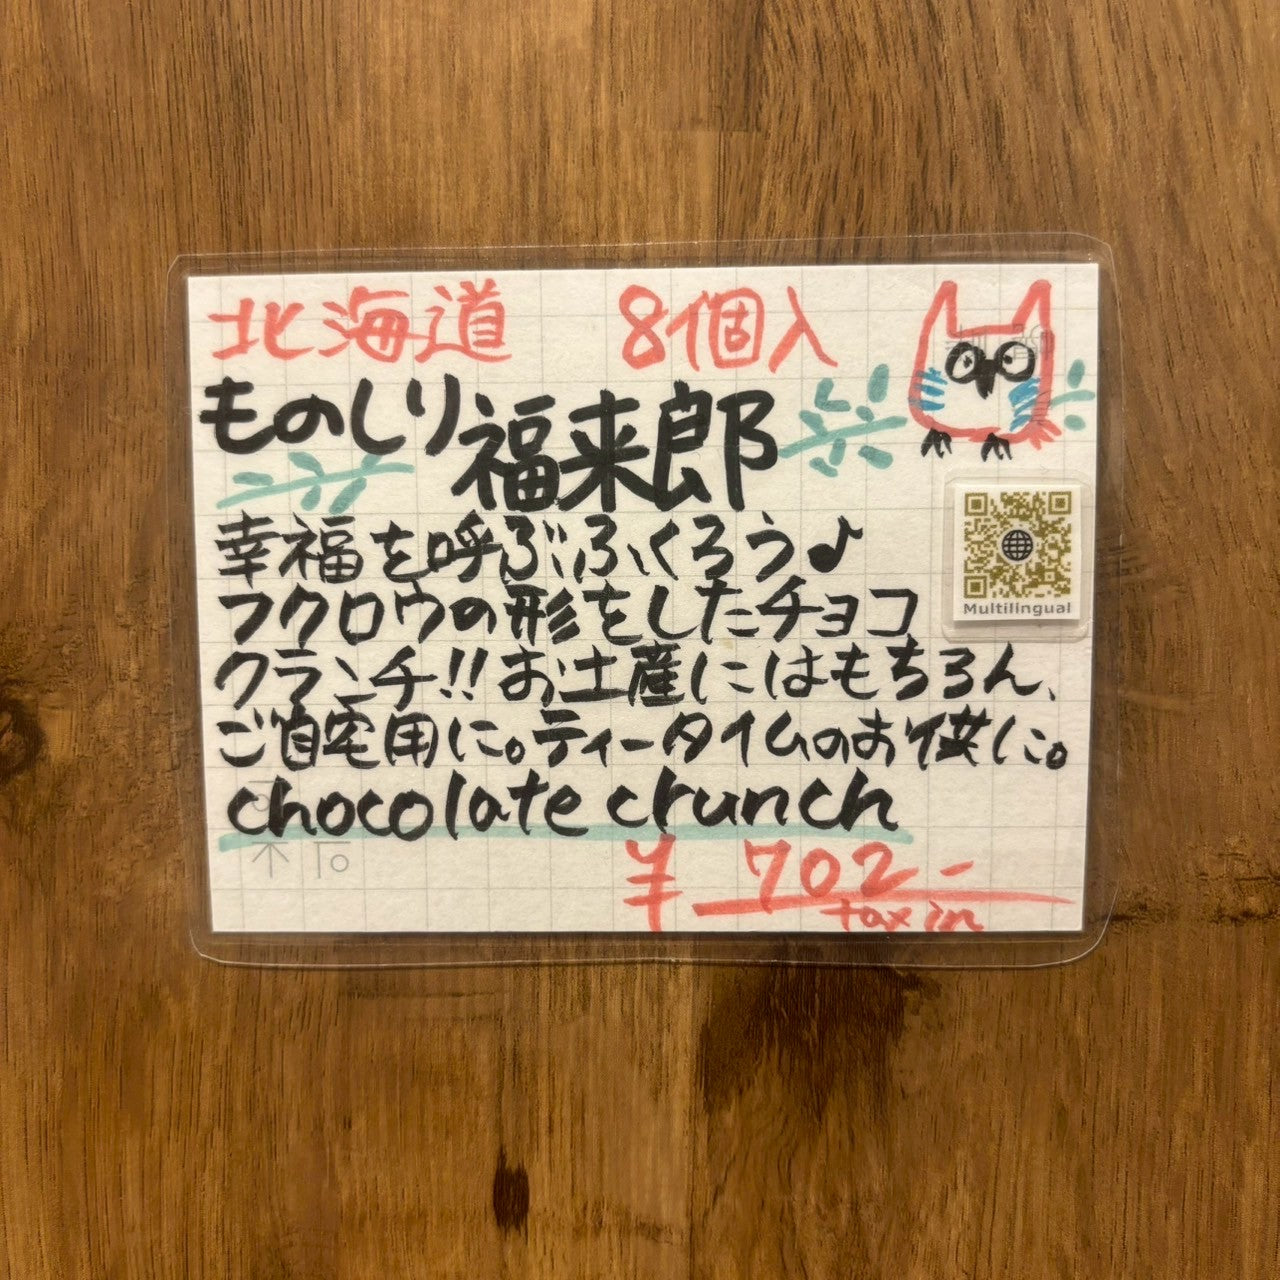 北海道 8個入
ものしり福来郎
幸福を呼ぶふくろう♪
フクロウの形をしたチョコ
クランチ!!お土産にはもちろん、
ご自宅用に。ティータイムのお供に。
chocolate crunch
¥ 702-
tax in
Multilingual